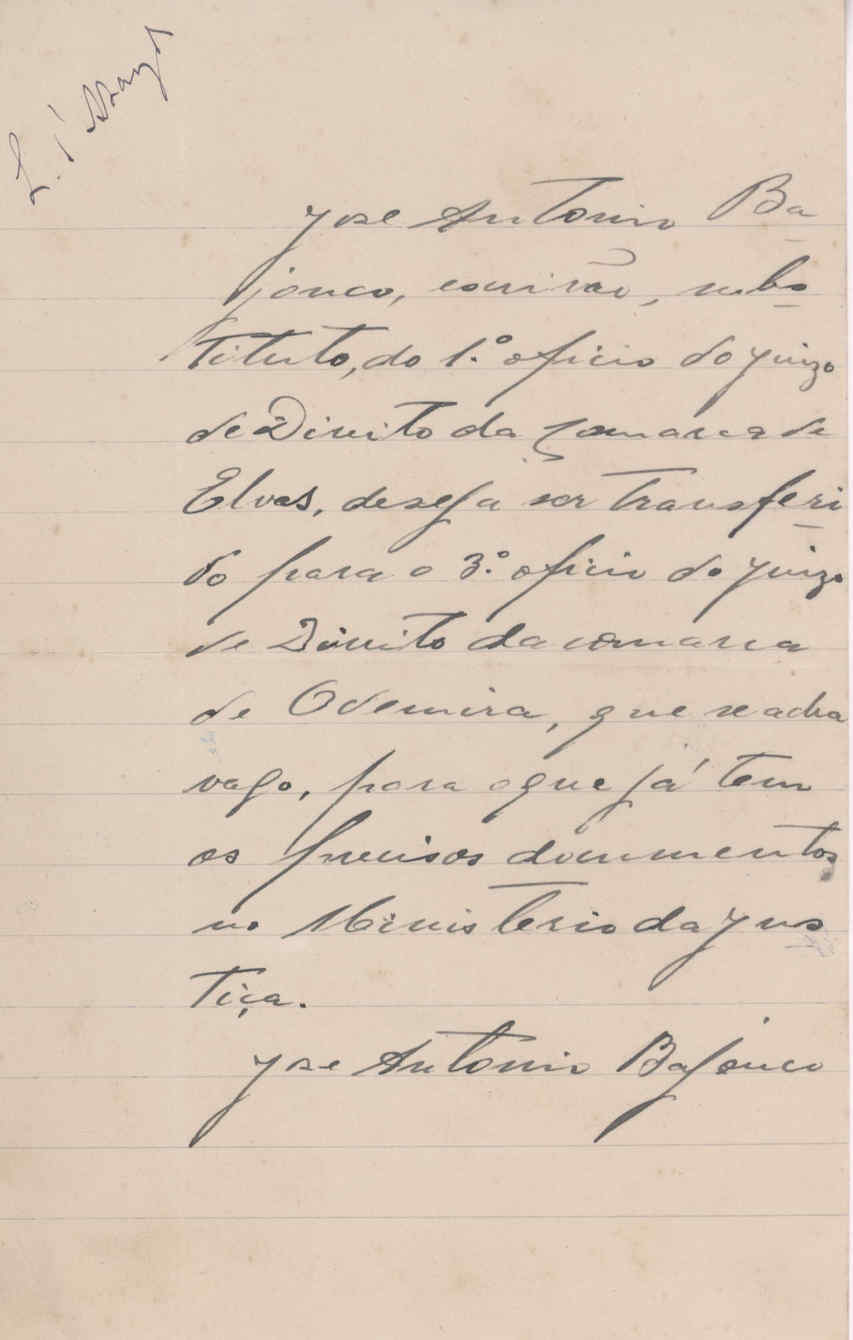 José Antonio Ba-
jouco, escrivão, subs-
tituto, do 1.º oficio do juizo
de Direito da comarca de
Elvas, deseja ser transferi-
do para o 3.º oficio do juizo
de Direito da comarca
de Odemira, que se acha
vago, para o que já tem
os precisos documentos
no Ministerio da Jus
tiça.
José Antonio Bajouco